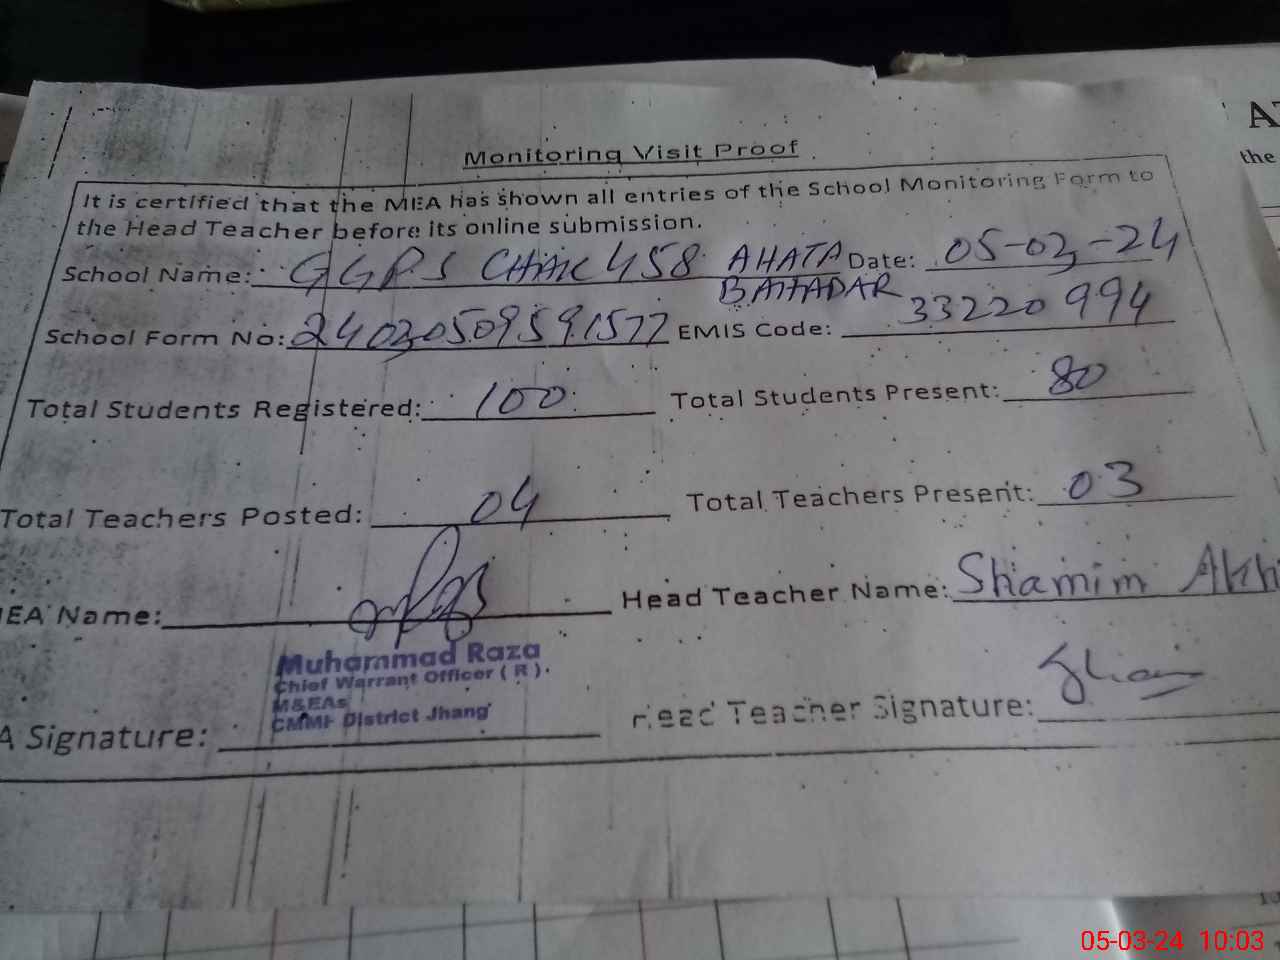 Monitoring Visit Proof
It is certified that the MEA has shown all entries of the School Monitoring Form to
the Head Teacher before its online submission.
School Name: GGPS CHAK 458 AHATA BAHADAR Date: 05-03-24
School Form No: 24030509591577 EMIS Code: 33220994
Total Students Registered: 100 Total Students Present: 80
Total Teachers Posted: 04 Total Teachers Present: 03
EA Name: Head Teacher Name: Shamim Akh
Muhammad Raza
Chief Warrant Officer ( R ).
M&EAs
CMMF District Jhang
A Signature: Head Teacher Signature:
A
the
05-03-24 10:03